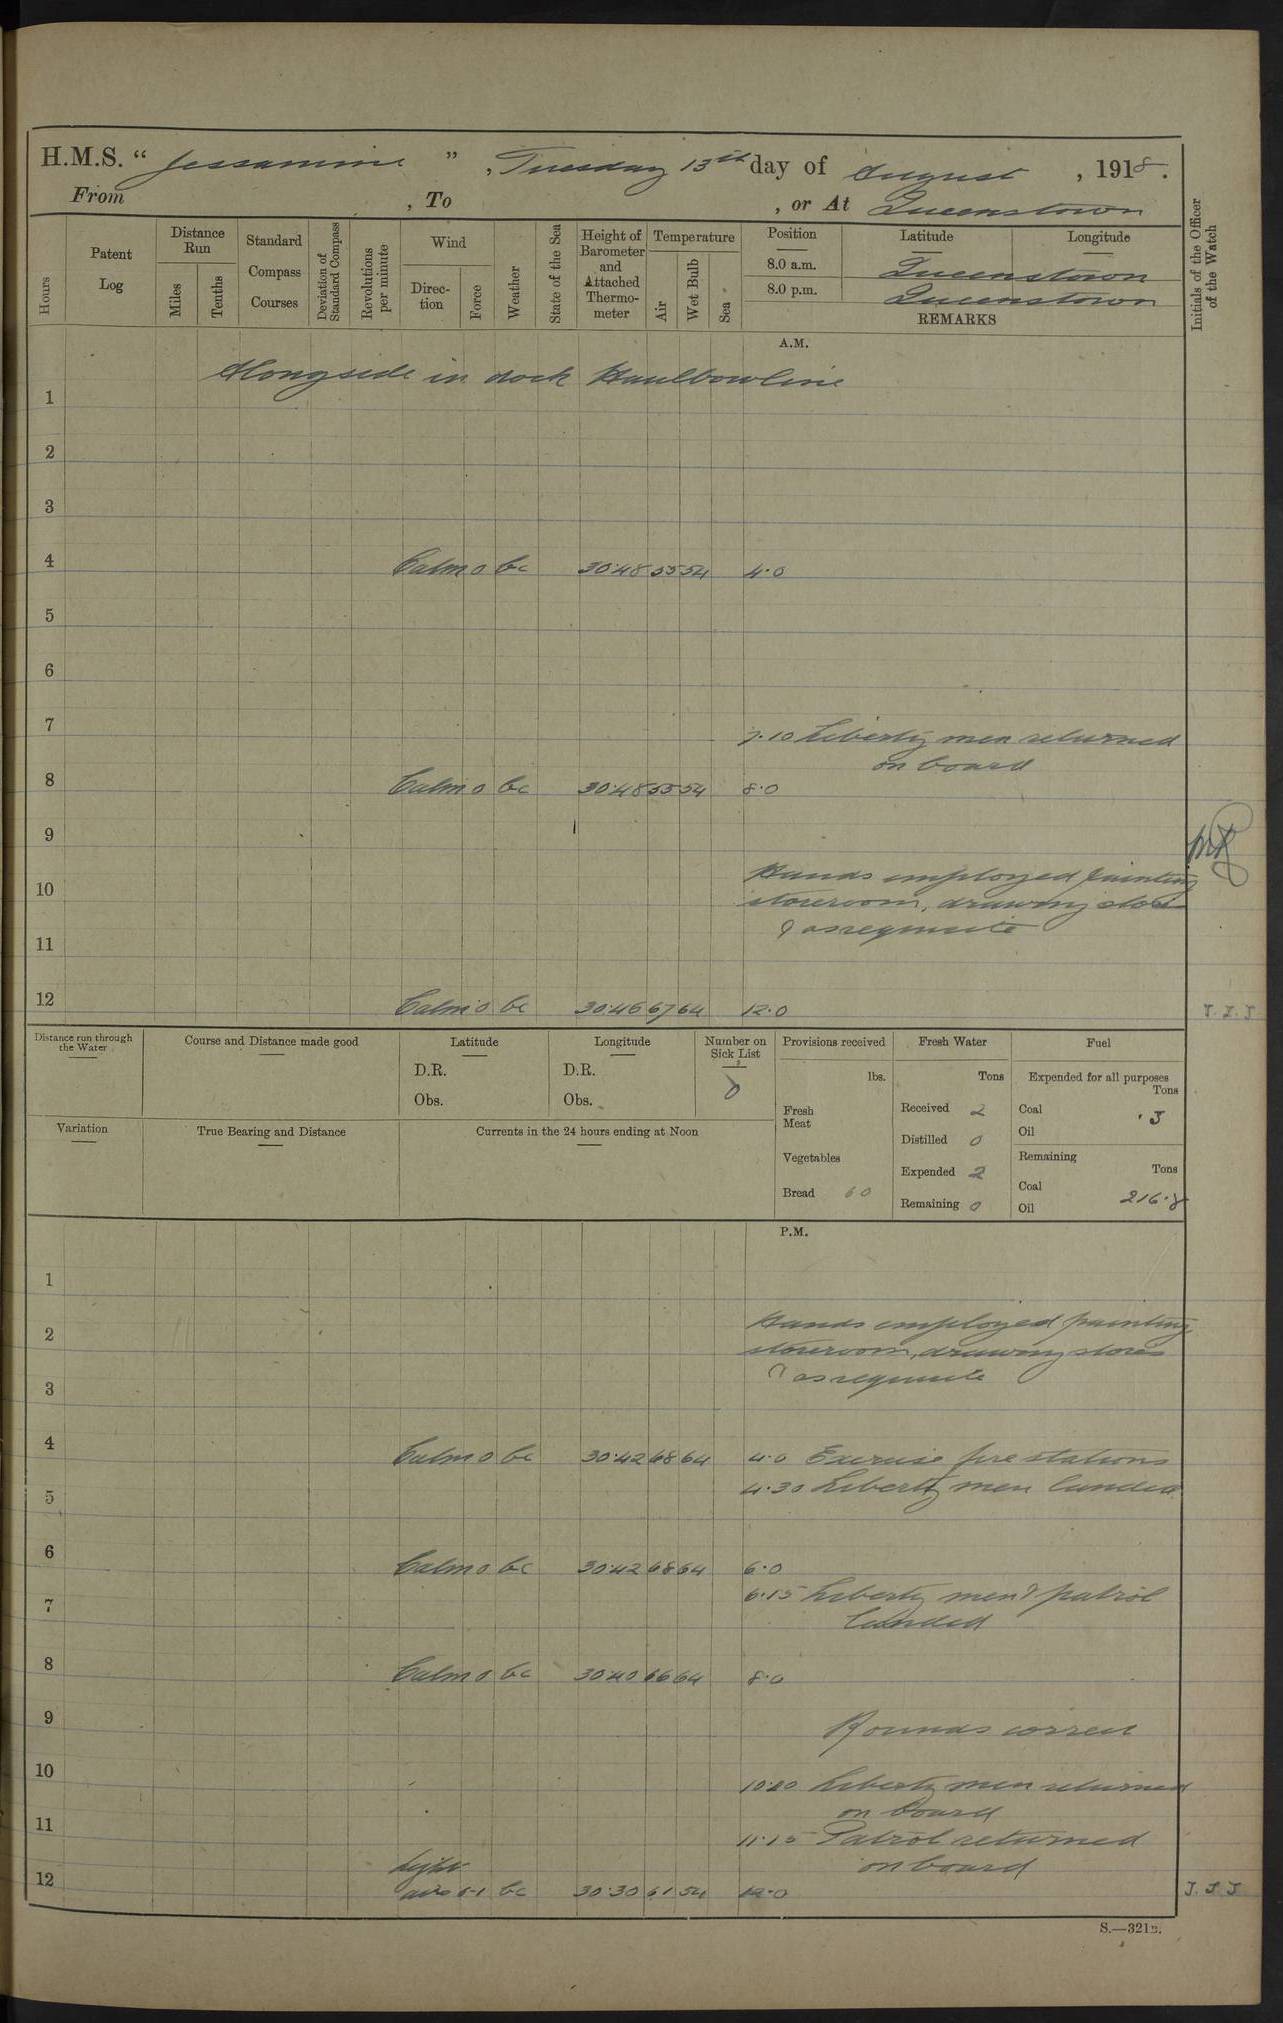 H.M.S. “ Jessamine ”, Tuesday 13th day of August , 1918.
From , To , or At Queenstown
Hours
Patent Log
Distance Run
Miles
Tenths
Standard Compass Courses
Deviation of Standard Compass
Revolutions per minute
Wind
Direc-tion
Force
Weather
State of the Sea
Height of Barometer and Attached Thermo-meter
Temperature
Air
Wet Bulb
Sea
Position Latitude Longitude
8.0 a.m. Queenstown
8.0 p.m. Queenstown
REMARKS
Initials of the Officer of the Watch
A.M.
Alongside in dock Haulbowline
1
2
3
4 Calm 0 bc 30.48 55 54 4.0
5
6
7 7.10 Liberty men returned
on board
8 Calm 0 bc 30.48 55 54 8.0
9
Hands employed painting
10 storeroom, drawing stores
& as requisite
11
12 Calm 0 bc 30.46 67 64 12.0 J.J.J
Distance run through the Water
Course and Distance made good
Latitude
D.R.
Obs.
Longitude
D.R.
Obs.
Number on Sick List
0
Provisions received
lbs.
Fresh Meat
Vegetables
Bread 60
Fresh Water
Tons
Received 2
Distilled 0
Expended 2
Remaining 0
Fuel
Expended for all purposes
Tons
Coal
Oil
Remaining
Tons
Coal 216.8
Oil
Variation
True Bearing and Distance
Currents in the 24 hours ending at Noon
P.M.
1
Hands employed painting
2 storeroom, drawing stores
& as requisite
3
4 Calm 0 bc 30.42 68 64 4.0 Exercise fire stations
4.30 Liberty men landed
5
6 Calm 0 bc 30.42 68 64 6.0
6.15 Liberty men & patrol
7 landed
8 Calm 0 bc 30.40 66 64 8.0
9 Rounds correct
10 10.20 Liberty men returned
on board
11 11.15 Patrol returned
on board
Light
12 airs 0-1 bc 30.30 61 54 12.0 J.J.J
S.—321B.